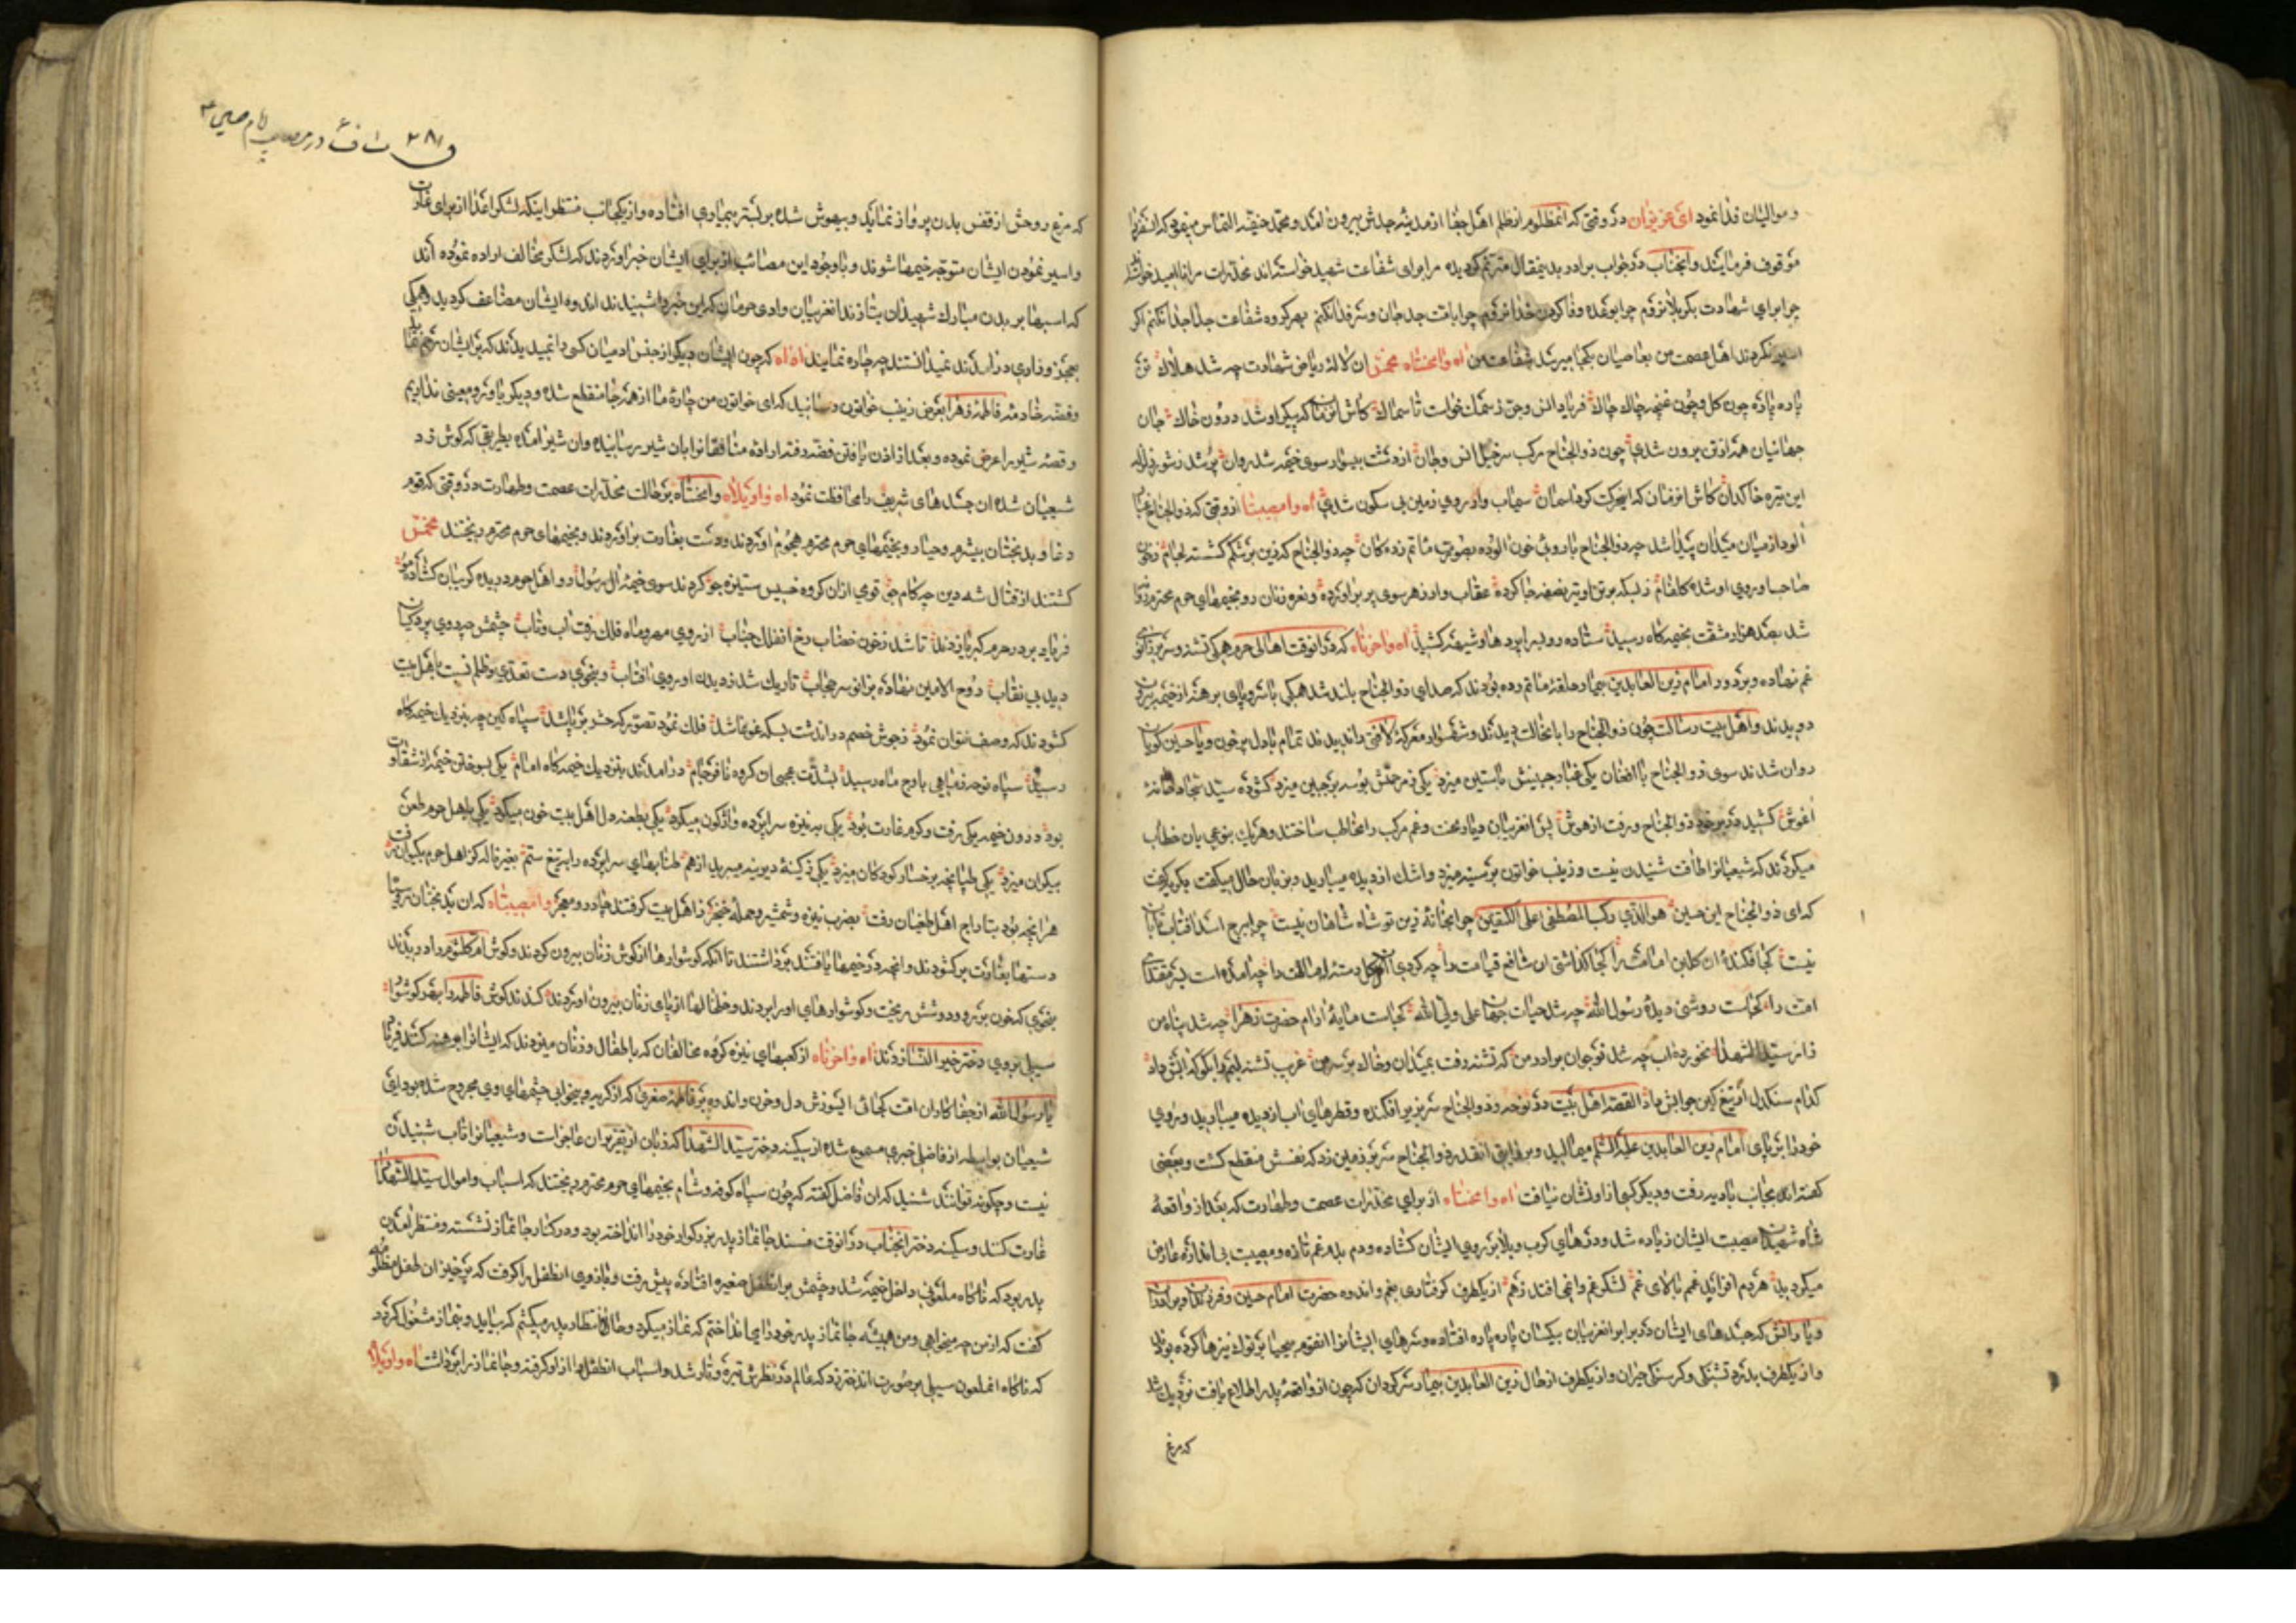 و موالیان فدا نمود ای عزیزان در وقتی که انمظلوم از ظلم اهل جفا از مدینه جدش بیرون آمد و محمد حنفیه التماس میفرمود که این سفر را
موقوف فرمایند و انجناب در جواب برادر بدینمقال مترنم گردیده مرا برای شفاعت شهید خواسته‌اند مخدرات مرا ناامید خواسته‌اند
چرا برای شهادت بکربلا نروم چرا بوعده وفا کردن خدا نروم چرا بامت جد جان و سر فدا نکنم بهر گروه شفاعت جدا جدا نکنم اگر
اسیر نکردند اهل عصمت من بعاصیان بکجا میرسد شفاعت من آه وامحنتاه مخمس ان لاله ریاض شهادت چه شد هلاک تن
پاره پاره چون گل و چون غنچه چاک چاک فریاد انس و جن ز سمک خواست تا سماک کاش انزمان که پیکر او شد درون خاک جان
جهانیان همه از تن برون شدی چون ذوالجناح مرکب سرخیل انس و جان از دشت بیسوار سوی خیمه شد روان پر شد ز شور زلزله
این تیره خاکدان کاش انزمان که این حرکت کرد اسمان سیماب وار روی زمین بی سکون شدی آه وامصیبتا از وقتی که ذوالجناح غبار
آلود از میان میدان پیدا شد چه ذوالجناح با روی خون الوده بصورت ماتم زده کان چه ذوالجناح که زین بر شکم گشته لجام ز خون
صاحب او روی او شده گلفام ز بسکه بر تن او تیر نصفه جا کرده عقاب وار ز هر سوی پر بر آورده و نعره زنان رو بخیمهای حرم محترم روان
شد بصد هزار مشقت بخیمه گاه رسید ستاده رو بسراپردها و شیهه کشید آه واحزناه که در انوقت اهالی حرم همگی تشنه و سر بزانوی
غم نهاده و بر دور امام زین العابدین بیمار حلقه ماتم زده بودند که صدای ذوالجناح بلند شد همگی با سر و پای برهنه از خیمه بیرون
دویدند و اهل بیت رسالت چون ذوالجناح را بانحالت دیدند و شهسوار معرکه لافتی را ندیدند تمام با دل پر خون و یا حسین گویان
روان شدند سوی ذوالجناح با افغان یکی غبار جبینش باستین میزد یکی ز مرحمتش بوسه بر جبین میزد گشوده سید سجاد
اغوش کشید در بر خود ذوالجناح و رفت از هوش پس انغریبان دیار محنت و غم مرکب را مخاطب ساختند و هر یک بنوعی بان خطاب
میکردند که شیعیانرا طاقت شنیدن نیست و زینب خواتون بر سینه میزد و اشک از دیده میبارید و بزبان حال میگفت و میگریست
که ای ذوالجناح این حسین هو الذی رکب المصطفی علی الکتفین چرا بخانه زین تو شاه شاهان نیست چرا ببرج اسد افتاب تابان
نیست کجا فکنده ان کلبن امامت را کجا گذاشتی ان شافع قیامت را چه کردی ان گل دسته امامت را چه امده است بسر مقتدای
امت را کجاست روشنی دیده رسول الله چه شد حیات جهان علی ولی الله کجاست مایه آرام حضرت زهرا چه شد پناه من
زار سید الشهدا نخورده اب چه شد نوجوان برادر من که تشنه رفت بمیدان و خاک بر سر من غریب تشنه لبم را بگو که ابش داد
کدام سنگدل از تیغ کین جوابش داد القصه اهل بیت در نوحه و ذوالجناح سر بزیر افکنده و قطرهای اب از دیده میبارید و روی
خود را بر پای امام زین العابدین علیه السلم میمالید و بروایتی انقدر ذوالجناح سر بر زمین زد که نفسش منقطع گشت و بعضی
گفته‌اند بجانب بادیه رفت و دیگر کسی از او نشان نیافت آه وامحنتاه از برای مخدرات عصمت و طهارت که بعد از واقعه
شاه شهیدان مصیبت ایشان زیاده شد و درهای کرب و بلا بر روی ایشان گشاده و دم بدم غم تازه و مصیبت بی اندازه عارض
میگردید هر دم افزاید غمم بالای غم لشکر غم را نمی افتد ز هم از یکطرف گرفتاری بغم و اندوه حضرت امام حسین و فرزندان و برادران
و یارانش که جسدهای ایشان در برابر انغریبان بیکسان پاره پاره افتاده و سرهای ایشانرا انقوم بیحیا بر نوک نیزها کرده بودند
و از یکطرف بدرد تشنگی و گرسنگی حیران و از یکطرف از حال زین العابدین بیمار سرگردان که چون از واقعه پدر اطلاع یافت نزدیک شد
که مرغ
۲۸۱ در مصیبت امام حسین ع
که مرغ روحش از قفس بدن پرواز نماید و بیهوش شده بر بستر بیماری افتاده و از یکجانب منتظر اینکه لشکر اعدا از برای غارت
و اسیر نمودن ایشان متوجه خیمها شوند و با وجود این مصائب از برای ایشان خبر اوردند که لشکر مخالف اراده نموده اند
که اسبها بر بدن مبارک شهیدان بتازند انغریبان وادی حرمان که این خبر را شنیدند اندوه ایشان مضاعف گردید و همگی
بعجز و زاری در آمدند نمیدانستند چه چاره نمایند آه آه که چون ایشان دیگر از جنس ادمیان کسی را نمیدیدند که بر ایشان ترحم نماید
و فضه خادمه فاطمه زهرا بعرض زینب خواتون رسانید که ای خواتون من چاره ما از همه جا منقطع شده و دیگر یاور و معینی نداریم
و قصه شیر را عرض نموده و بعد از اذن یافتن فضه رفته اراده منافقانرا بان شیر رسانیده و ان شیر امده بطریقی که گوش زد
شیعیان شده ان جسدهای شریف را محافظت نمود آه واویلاه وامحنتاه بر حالت مخدرات عصمت و طهارت در وقتی که قوم
دغا و بدبختان بیشرم و حیا رو بخیمهای حرم محترم هجوم اوردند و دست بغارت بر اوردند و بخیمهای حرم محترم ریختند مخمس
گشتند از قتال شه دین چه کام جو قومی ازان گروه خسیس ستیزه جو کردند سوی خیمه ال رسول رو اهل حرم دریده گریبان گشاده مو
فریاد بر در حرم کبریا زدند تا شد ز خون خضاب رخ انفلک جناب از روی مهر و ماه فلک رفت اب و تاب چشمش چه روی پردگیان
دید بی نقاب روح الامین نهاده بزانو سر حجاب تاریک شد ز دیدن او روی افتاب و بنحوی دست تعدی و ظلم نسبت باهل بیت
گشودند که وصف نتوان نمود ز جوش خصم دراندشت بسکه غوغا شد فلک نمود تصور که حشر بر پا شد سپاه کین چه بنزدیک خیمه گاه
رسید سپاه نوحه ز ماهی باوج ماه رسید بشدت عجبی ان گروه نافرجام در امدند بنزدیک خیمه گاه امام یکی بسوختن خیمه از شقاوت
بود درون خیمه یکی رفت و گرم غارت بود یکی به نیزه سراپرده واژگون میکرد یکی بطعنه دل اهل بیت خون میکرد یکی باهل حرم طعن
بیکران میزد یکی طپانچه برخسار کودکان میزد یکی ز کینه دیرینه میبرید از هم طنابهای سراپرده را به تیغ ستم بغیر ناله کز اهل حرم بکیوان رفت
هر انچه بود بتاراج اهل طغیان رفت بضرب نیزه و شمشیر و حمله خنجر ز اهل بیت گرفتند چادر و معجر وامصیبتاه که ان بدبختان روسیا
دستها بغارت بر گشودند و انچه در خیمها یافتند برداشتند تا انکه گوشوارها از گوش زنان بیرون کردند و گوش ام کلثوم را دریدند
بنحوی که خون بر رو و دوشش ریخت و گوشوارهای او را بردند و خلخالها از پای زنان بیرون اوردند کندند گوش فاطمه را بهر گوشوار
سیلی بروی دختر خیر النسا زدند آه واحزناه از کعبهای نیزه گروه مخالفان که باطفال و زنان میزدند که ایشانرا برهنه کنند فریاد
یا رسول الله از جفاکاران امت کجائی ایسوزش دل و خون و اندوه بر فاطمه صغری که از گریه و بیخوابی چشمهای وی مجروح شده بود ای
شیعیان بواسطه از فاضلی خبری مسموع شده از سکینه دختر سید الشهدا که زبان از تقریر ان عاجز است و شیعیانرا تاب شنیدن
نیست و چگونه توانند شنید که ان فاضل گفته که چون سپاه کوفه و شام بخیمهای حرم محترم ریختند که اسباب و اموال سید الشهدا را
غارت کنند و سکینه دختر انجناب در انوقت مسند جانماز پدر بزرگوار خود را انداخته بود و در کنار جانماز نشسته و منتظر آمدن
پدر بود که ناگاه ملعونی داخل خیمه شد و چشمش بر انطفل صغیره افتاده پیش رفت و بازوی انطفل را گرفت که برخیز ان طفل مظلومه
گفت که از من چه میخواهی و من همیشه جانماز پدر خود را می انداختم که نماز میکرد و حال انتظار پدر میکشم که بیاید و بنماز مشغول گردد
که ناگاه انملعون سیلی بر صورت اندختر زد که عالم در نظرش تیره و تار شد و اسباب انطفل را از او گرفته و جانماز را برداشت آه واویلاه